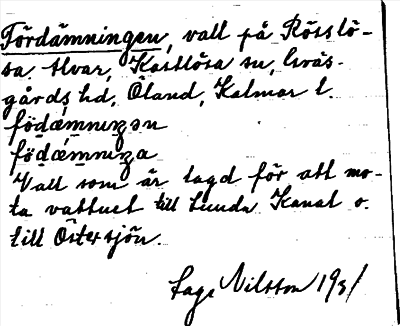 Fördämningen, vall på Rösslö-
sa alvar, Kastlösa sn, Gräs-
gårds hd, Öland, Kalmar l.
födæmnıŋən
födæmnıŋa
Vall som är lagd för att mo-
ta vattnet till Lunda Kanal o.
till Östersjön.
Lage Nilsson 1931